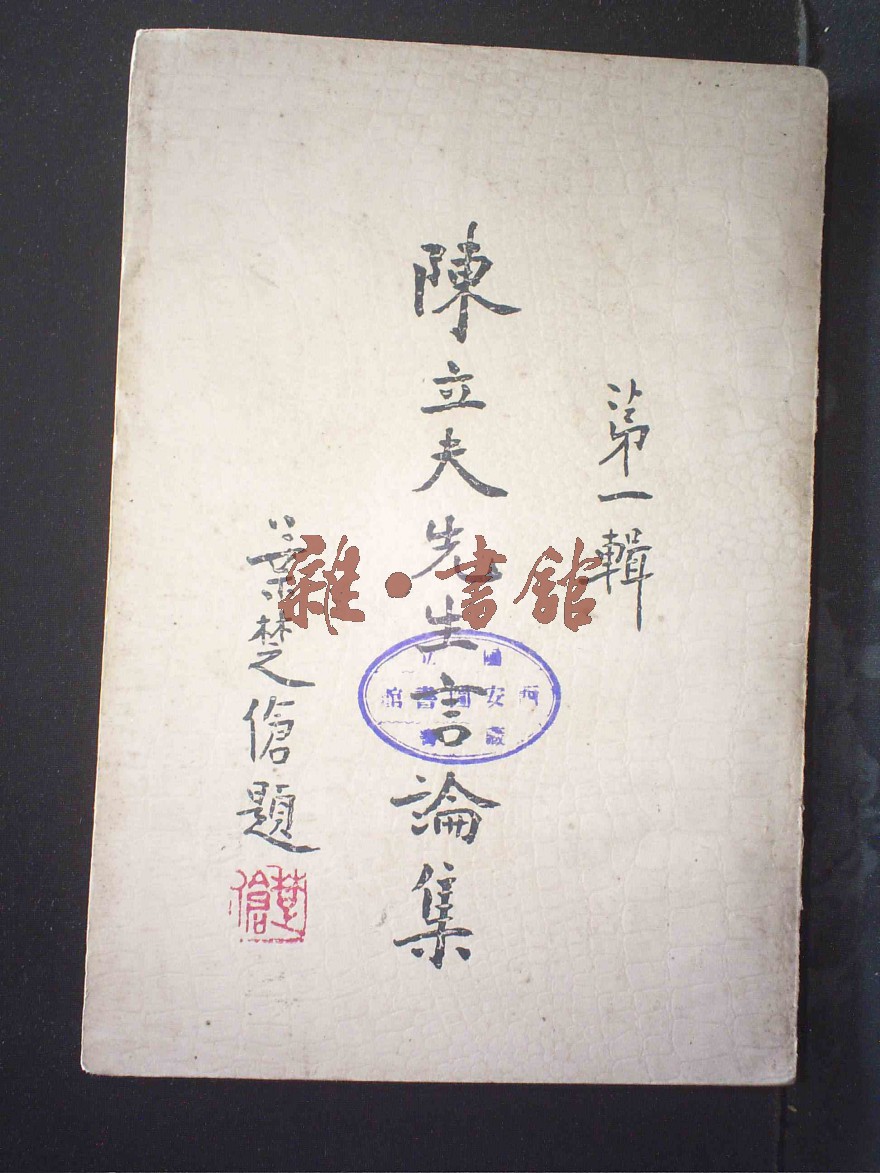 第一輯
陳立夫先生言論集
葉楚傖題
楚傖
國立
西安圖書館
藏書
雜·書館